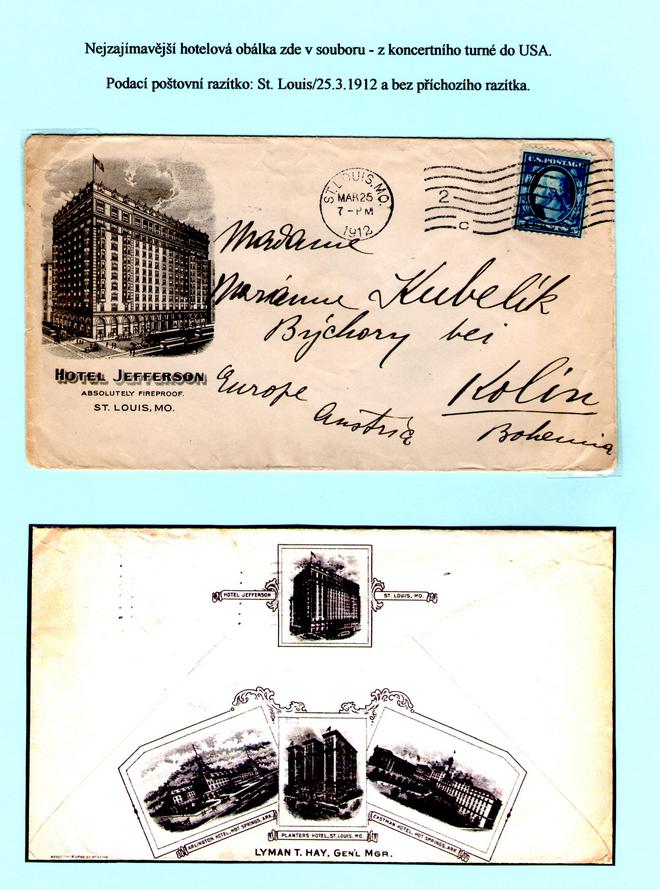 Nejzajímavější hotelová obálka zde v souboru - z koncertního turné do USA.
Podací poštovní razítko: St. Louis/25.3.1912 a bez příchozího razítka.
ST. LOUIS, MO.
MAR 25
7 - PM
1912
2
C
U.S. POSTAGE
CENTS
Madame
Marianne Kubelík
Býchory bei
Kolín
Europe
Austria
Bohemia
HOTEL JEFFERSON
ABSOLUTELY FIREPROOF.
ST. LOUIS, MO.
HOTEL JEFFERSON
ST. LOUIS, MO.
ARLINGTON HOTEL, HOT SPRINGS, ARK.
PLANTERS HOTEL, ST. LOUIS, MO.
EASTMAN HOTEL, HOT SPRINGS, ARK.
LYMAN T. HAY, GEN'L MGR.